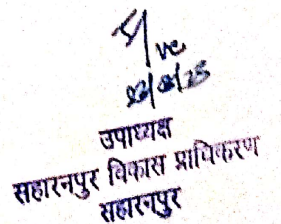 उपाध्यक्ष
सहारनपुर विकास प्राधिकरण
सहारनपुर